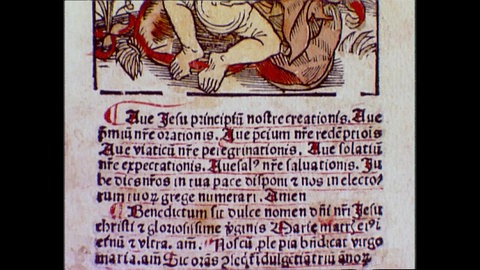 Aue Jesu principiū nostre creationis. Aue
p̄miū nr̄e orationis. Aue p̄cium nr̄e redēptiōis
Aue viaticū nr̄e peregrinationis. Aue solatiū
nr̄e expectationis. Aue salꝰ nr̄e saluationis. Ju
be dic sn̄ros in tua pace disponi ⁊ nos in electo
rum tuoꝝ grege numerari. Amen
Benedictum sit dulce nomen dn̄i nr̄i Jesu
christi ⁊ gloriosissime v̓ginis Marie matr̄
etnū ⁊ vltra. am̄. Nos cū ple pia bn̄dicat virgo
maria. am̄ Sic orās indulgentiaꝝ